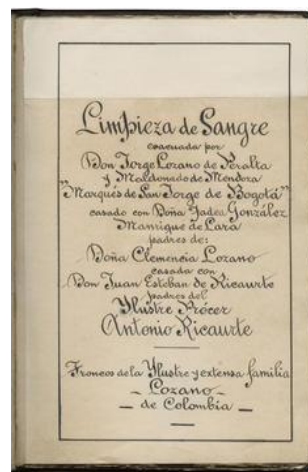 Limpieza de Sangre
evacuada por
Don Jorge Lozano de Peralta
y Maldonado de Mendoza
"Marqués de San Jorge de Bogotá"
casado con Doña Tadea González
Manrique de Lara
padres de:
Doña Clemencia Lozano
casada con
Don Juan Esteban de Ricaurte
padres del
Ylustre Prócer
Antonio Ricaurte
Troncos de la Ylustre y extensa familia
- Lozano -
- de Colombia -